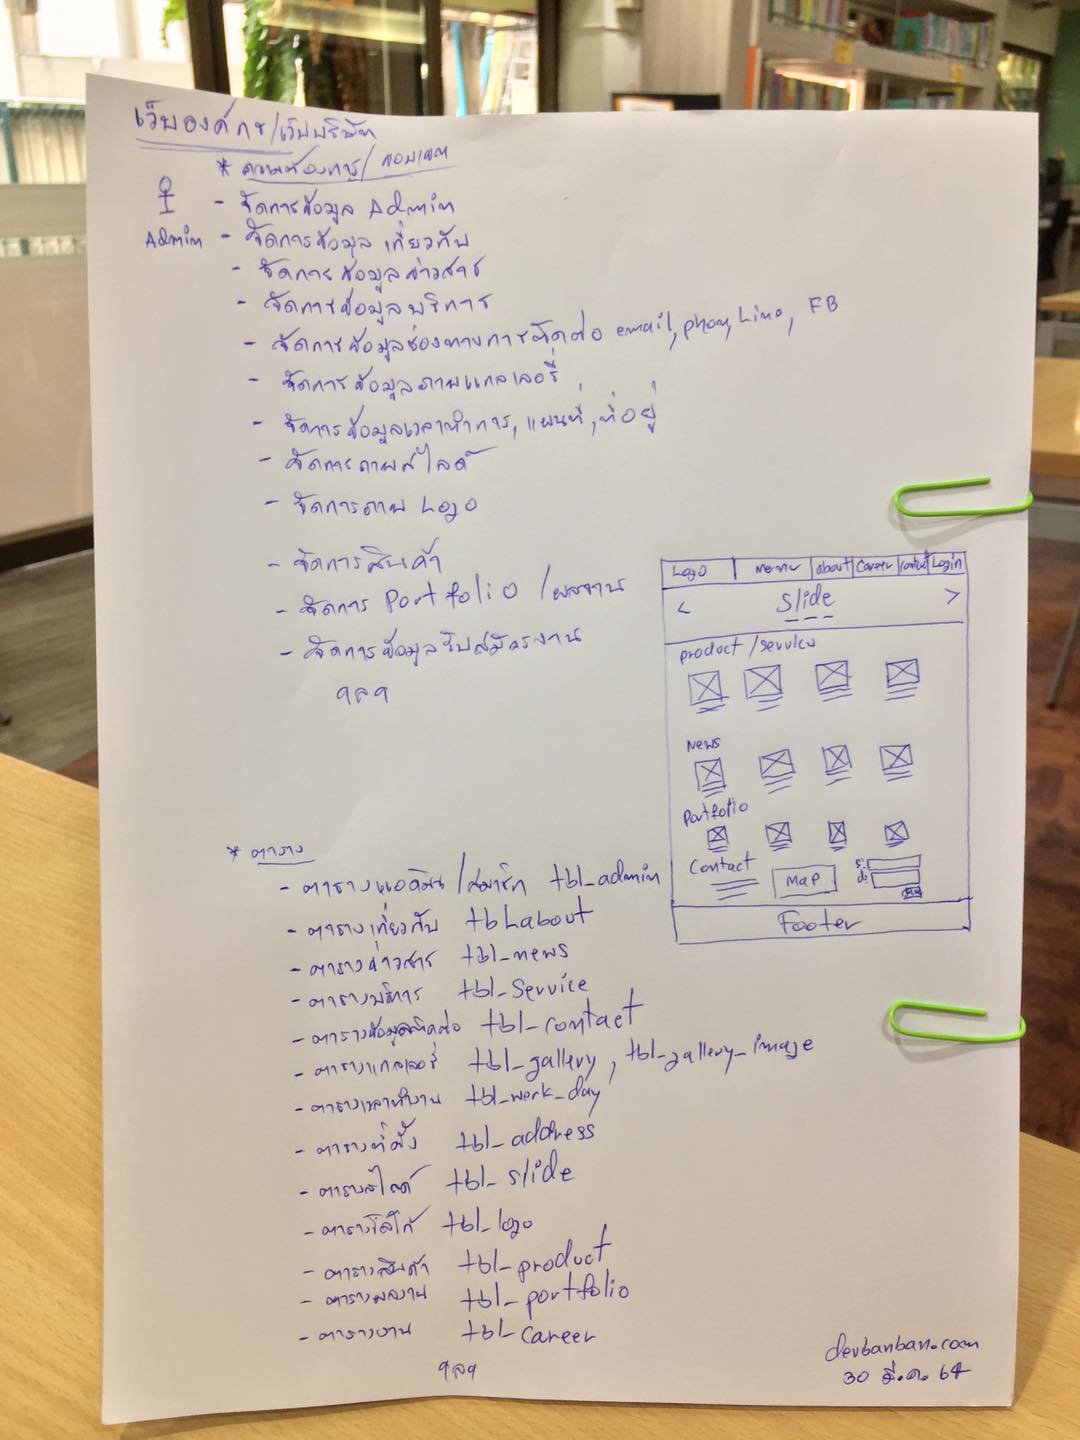 เว็บองค์กร/เว็บบริษัท
* ความต้องการ/ขอบเขต
Admin
- จัดการข้อมูล Admin
- จัดการข้อมูล เกี่ยวกับ
- จัดการข้อมูลข่าวสาร
- จัดการข้อมูลบริการ
- จัดการข้อมูลช่องทางการติดต่อ email, phone, Line, FB
- จัดการข้อมูลภาพแกลเลอรี่
- จัดการข้อมูลเวลาทำการ, แผนที่, ที่อยู่
- จัดการภาพสไลด์
- จัดการภาพ Logo
- จัดการสินค้า
- จัดการ Portfolio /ผลงาน
- จัดการข้อมูลรับสมัครงาน
ฯลฯ
Logo menu about Career contact Login
< Slide >
product/service
News
Portfolio
Contact map
Footer
* ตาราง
- ตารางแอดมิน/สมาชิก tbl_admin
- ตารางเกี่ยวกับ tbl_about
- ตารางข่าวสาร tbl_news
- ตารางบริการ tbl_Service
- ตารางข้อมูลติดต่อ tbl_contact
- ตารางแกลเลอรี่ tbl_gallery, tbl_gallery_image
- ตารางเวลาทำงาน tbl_work_day
- ตารางที่ตั้ง tbl_address
- ตารางสไลด์ tbl_slide
- ตารางโลโก้ tbl_logo
- ตารางสินค้า tbl_product
- ตารางผลงาน tbl_portfolio
- ตารางงาน tbl_career
ฯลฯ
devbanban.com
30 มี.ค. 64